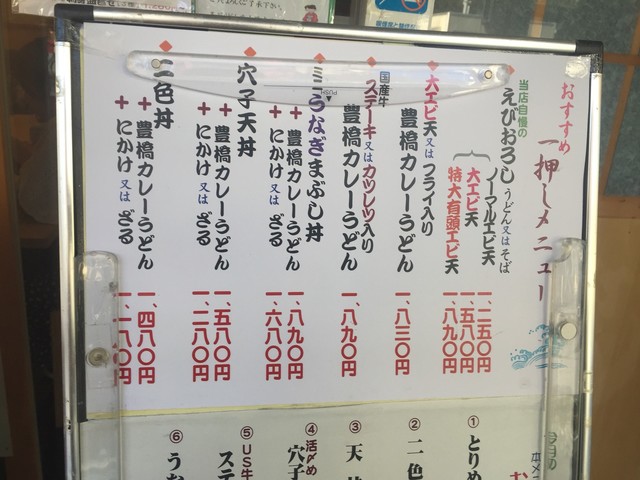 おすすめ
一押しメニュー
当店自慢の
えびおろしうどん又はそば
ノーマルエビ天 一、二五〇円
大エビ天 一、五八〇円
特大有頭エビ天 一、八九〇円
大エビ天又はフライ入り
豊橋カレーうどん 一、八三〇円
国産牛
ステーキ又はカツレツ入り
豊橋カレーうどん 一、八九〇円
ミニうなぎまぶし丼
+豊橋カレーうどん 一、八九〇円
+にかけ又はざる 一、六八〇円
穴子天丼
+豊橋カレーうどん 一、五八〇円
+にかけ又はざる 一、二八〇円
二色丼
+豊橋カレーうどん 一、四八〇円
+にかけ又はざる 一、一八〇円
PUSH
①とりめ
②二色
③天
④活〆め
穴子
⑤US牛
ステ
⑥うな